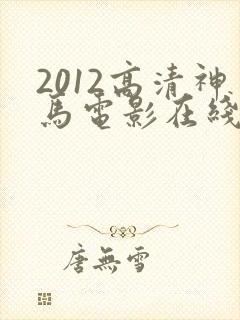 2012高清神
馬電影在綫
唐無雪